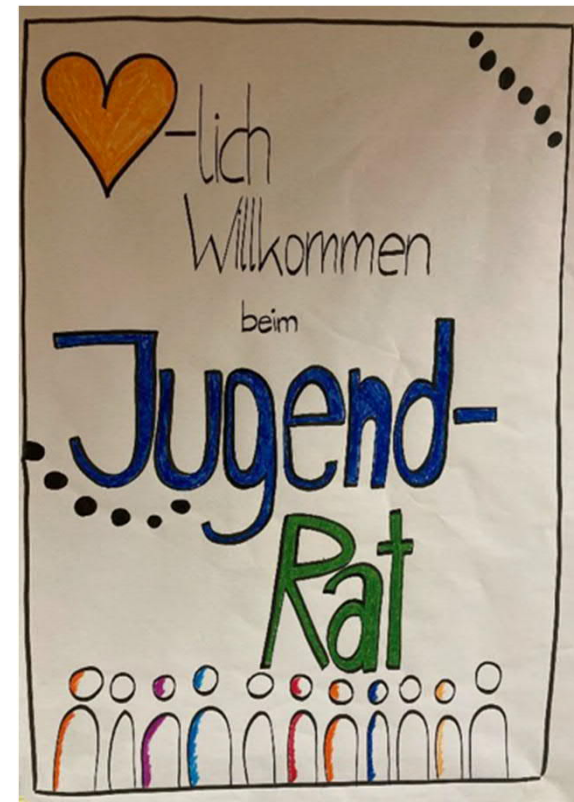 -lich
Willkommen
beim
Jugend-
Rat